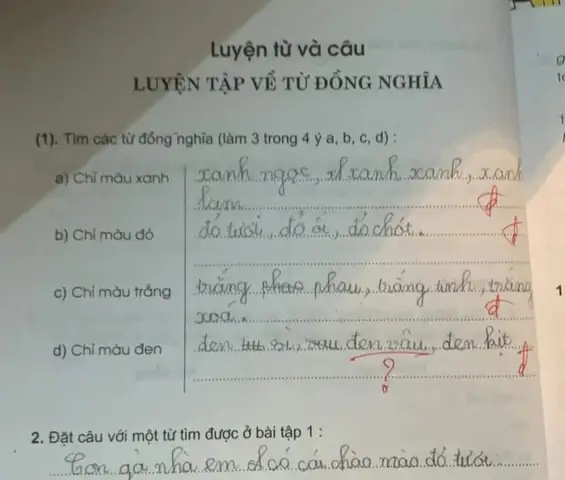 Luyện từ và câu
LUYỆN TẬP VỀ TỪ ĐỒNG NGHĨA
(1). Tìm các từ đồng nghĩa (làm 3 trong 4 ý a, b, c, d) :
a) Chỉ màu xanh
xanh ngọc, xanh xanh, xanh
lam
b) Chỉ màu đỏ
đỏ tươi, đỏ ối, đỏ chót.
c) Chỉ màu trắng
trắng phau, trắng tinh, trắng
xoá.
d) Chỉ màu đen
đen sì, đen vâu, đen kịt
?
1
2. Đặt câu với một từ tìm được ở bài tập 1 :
Con gà nhà em có cái chào mào đỏ tươi